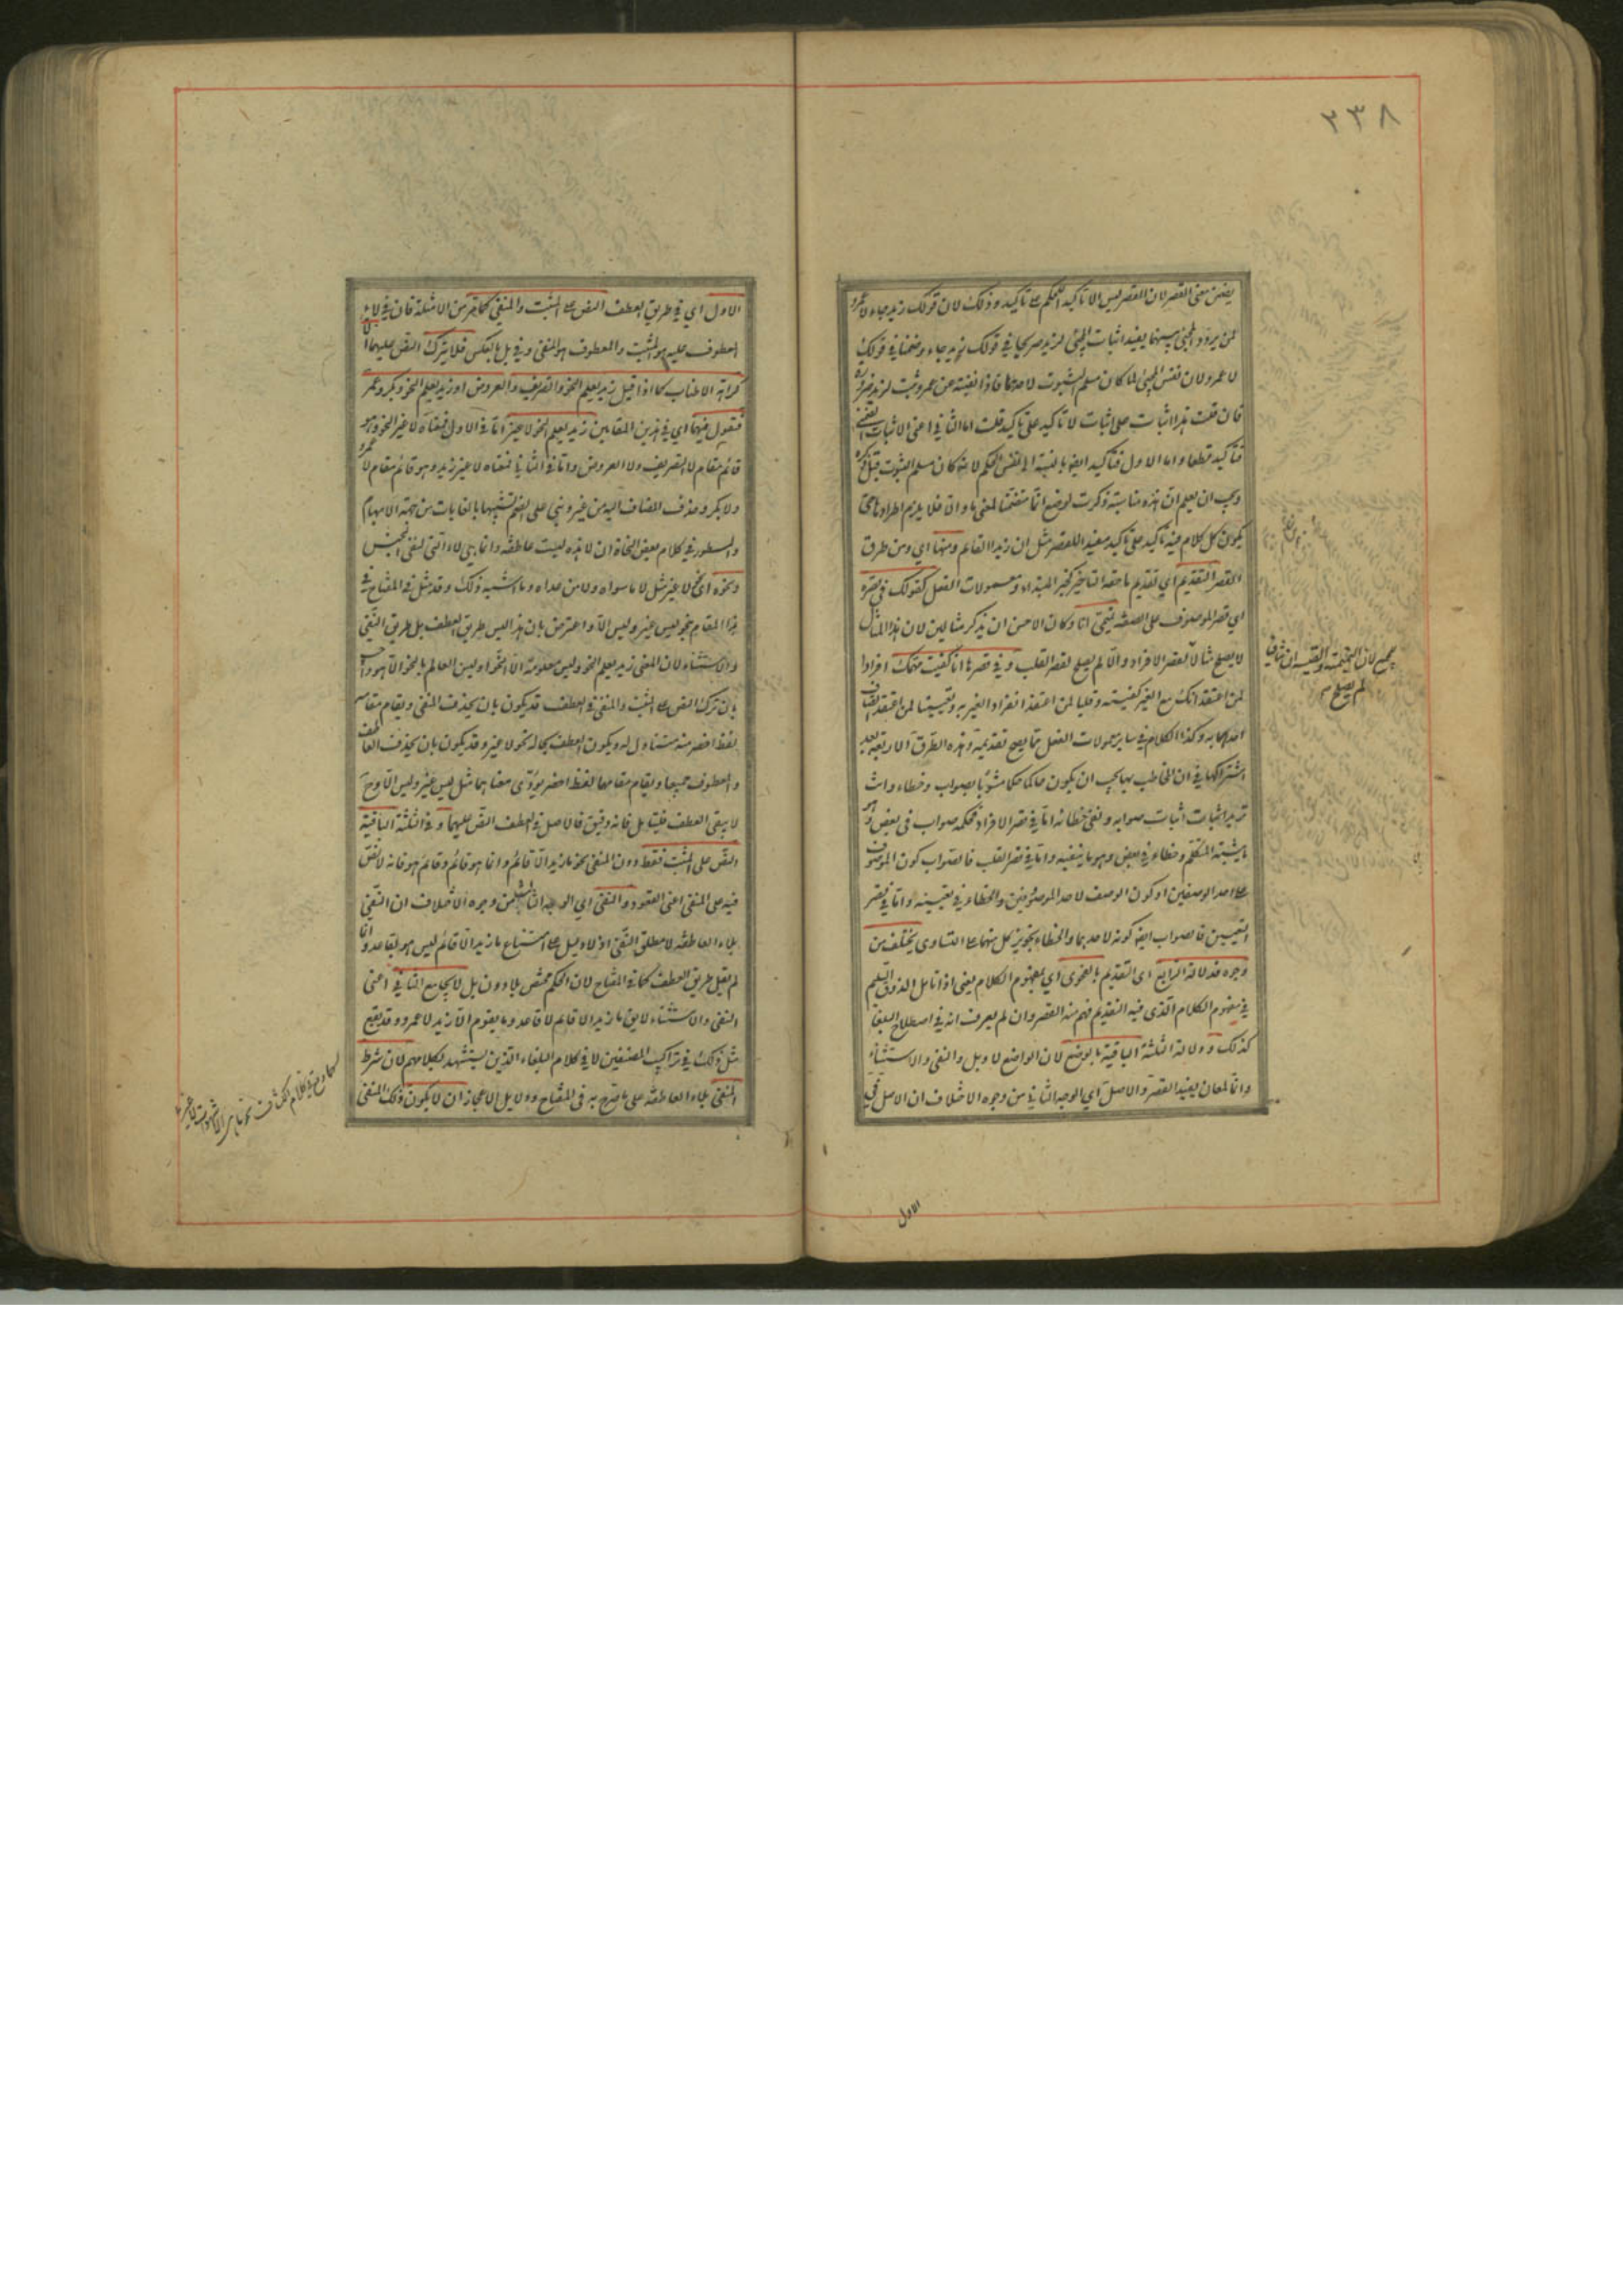 ٢٣٨
يضمن معنى القصر لان القصر ليس الا تاكيد الحكم على تاكيد وذلك لان قولك زيد جاء لا عمرو
لمن يردد المجئ بينهما يفيد اثبات المجئ لزيد صريحا في قولك زيد جاء وضمنا في قولك
لا عمرو لان نفس المجئ لما كان مسلم الثبوت لاحدهما فاذا نفيته عن عمرو ثبت لزيد ضرورة
فان قلت هذا اثبات على اثبات لا تاكيد على تاكيد قلت اما الثاني اعنى الاثبات الضمنى
فتاكيد قطعا واما الاول فتاكيد ايضا بالنسبة الى نفس الحكم لانه كان مسلم الثبوت قبل ذكره
ويجب ان يعلم ان هذه مناسبة ذكرت لوضع انما متضمنا لمعنى ما والا فلا يلزم اطرادها حتى
يكون كل كلام فيه تاكيد على تاكيد مفيدا للقصر مثل ان زيدا لقائم ومنها اي ومن طرق
القصر التقديم اي تقديم ما حقه التاخير كخبر المبتداء ومعمولات الفعل كقولك في قصره
اي قصر الموصوف على الصفة تميمى انا وكان الاحسن ان يذكر مثالين لان هذا المثال
لا يصلح مثالا لقصر الافراد والا لم يصلح لقصر القلب وفي قصرها انا كفيت مهمك افرادا
لمن اعتقد انك مع الغير كفيته وقلبا لمن اعتقد انفراد الغير به وتعيينا لمن اعتقد اتصاف
احدهما به وكذا الكلام في سائر معمولات الفعل مما يصح تقديمه وهذه الطرق الاربعة بعد
اشتراكها في ان المخاطب بها يجب ان يكون حاكما حكما مشوبا بصواب وخطاء وانت
تريد اثبات صوابه ونفى خطائه اما في قصر الافراد فحكمه صواب في بعض وهو
ما يثبته المتكلم وخطاء في بعض وهو ما ينفيه واما في قصر القلب فالصواب كون الموصوف
على احد الوصفين او كون الوصف لاحد الموصوفين والخطاء في تعيينه واما في قصر
التعيين فالصواب ايضا كونه لاحدهما والخطاء تجويز كل منهما على التساوى يختلف من
وجوه فدلالة الرابع اى التقديم بالفحوى اي بمفهوم الكلام يعنى اذا تامل الذوق السليم
في مفهوم الكلام الذى فيه التقديم فهم منه القصر وان لم يعرف انه في اصطلاح البلغا
كذلك ودلالة الثلثة الباقية بالوضع لان الواضع لا وبل والنفى والاستثناء
وانما لمعان يفيد القصر والاصل اي الوجه الثاني من وجوه الاختلاف ان الاصل في
الاول
الاول اي في طريق العطف النص على المثبت والمنفى كما مر من الامثلة فان في لاء
المعطوف عليه هو المثبت والمعطوف هو المنفى وفي بل بالعكس فلا يترك النص عليهما الا
كراهة الاطناب كما اذا قيل زيد يعلم النحو والتصريف والعروض او زيد يعلم النحو وبكر وعمرو
فتقول فيهما اي في هذين المقامين زيد يعلم النحو لا غير اما في الاول فمعناه لا غير النحو وهو
قائم مقام لا التصريف ولا العروض واما في الثاني فمعناه لا غير زيد وهو قائم مقام لا عمرو
ولا بكر وحذف المضاف اليه من غير وبنى على الضم تشبيها بالغايات من جهة الابهام
والمسطور في كلام بعض النحاة ان لا هذه ليست عاطفة وانما هي لاء التى لنفى الجنس
ونحوه اى نحو لا غير مثل لا ما سواه ولا من عداه وما اشبه ذلك وقد مثل في المفتاح في
هذا المقام بنحو ليس غير وليس الا واعترض بان هذا ليس طريق العطف بل طريق النفى
والاستثناء لان المعنى زيد يعلم النحو وليس معلومه الا النحو او ليس العالم بالنحو الا هو واجيب
بان ترك النص على المثبت والمنفى في العطف قد يكون بان يحذف المنفى ويقام مقامه
لفظ اخصر منه متناول له ويكون العطف بحاله نحو لا غير وقد يكون بان يحذف العاطف
والمعطوف جميعا ويقام مقامهما لفظ اخصر يؤدى معناهما مثل ليس غير وليس الا وح
لا يبقى العطف فليتامل فانه دقيق فالاصل في العطف النص عليهما وفي الثلثة الباقية
النص على المثبت فقط دون المنفى نحو ما زيد الا قائم وانما هو قائم وقائم هو فانه لا نص
فيه على المنفى اعنى القعود والنفى اي الوجه الثالث من وجوه الاختلاف ان النفى
بلاء العاطفة لا مطلق النفى اذ لا دليل على امتناع ما زيد الا قائم ليس هو بقاعد وانما
لم يقل طريق العطف كما في المفتاح لان الحكم مختص بلا دون بل لا يجامع الثاني اعنى
النفى والاستثناء لا يق ما زيد الا قائم لا قاعد وما يقوم الا زيد لا عمرو وقد يقع
مثل ذلك في تراكيب المصنفين لا في كلام البلغاء الذين يستشهد بكلامهم لان شرط
المنفى بلاء العاطفة على ما صرح به في المفتاح ودلايل الاعجاز ان لا يكون ذلك المنفى